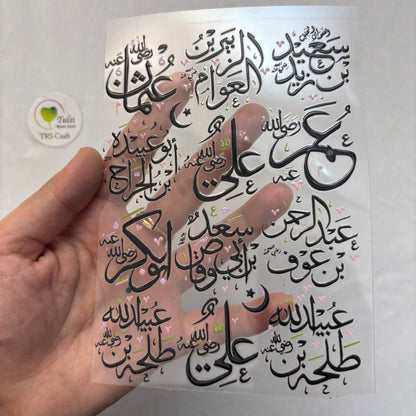 سعيد بن زيد رضي الله عنه
الزبير بن العوام
عثمان رضي الله عنه
عمر رضي الله عنه
علي رضي الله عنه
أبو عبيدة ابن الجراح
عبد الرحمن بن عوف
سعد بن أبي وقاص
أبو بكر رضي الله عنه
طلحة بن عبيد الله رضي الله عنه
علي رضي الله عنه
طلحة بن عبيد الله رضي الله عنه
Tulsi
TRS Craft